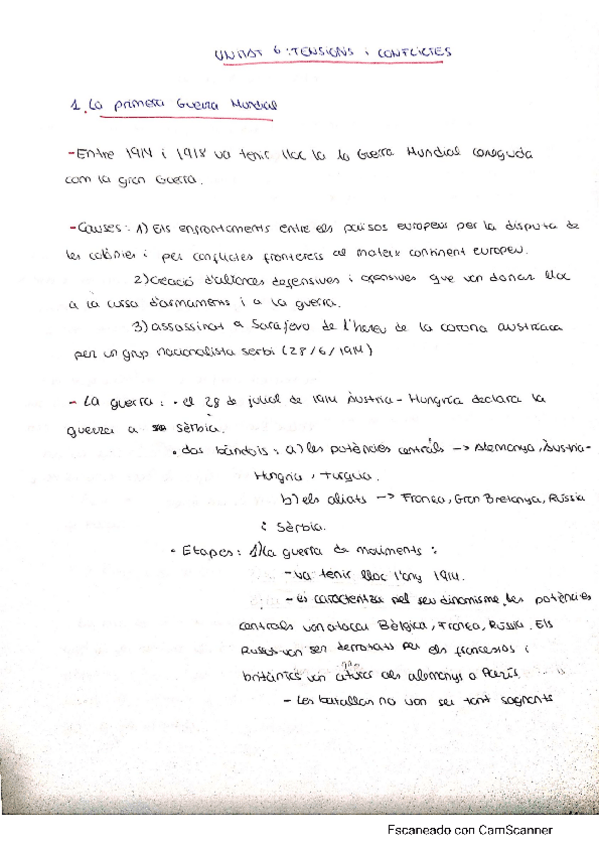 UNITAT 6: TENSIONS i CONFLICTES
1. La primera Guerra Mundial
- Entre 1914 i 1918 va tenir lloc la la Guerra Mundial coneguda
com la gran Guerra.
- Causes: 1) Els enfrontaments entre els països europeus per la disputa de
les colònies i per conflictes fronterers al mateix continent europeu.
2) creació d'aliances defensives i ofensives que van donar lloc
a la cursa d'armaments i a la guerra.
3) assassinat a Sarajevo de l'hereu de la corona austríaca
per un grup nacionalista serbi (28/6/1914)
- La guerra: · el 28 de juliol de 1914 Àustria-Hungria declara la
guerra a Sèrbia.
· dos bàndols: a) les potències centrals -> Alemanya, Àustria-
Hungria, Turquia.
b) els aliats -> França, Gran Bretanya, Rússia
i Sèrbia.
· Etapes: 1) La guerra de moviments:
- va tenir lloc l'any 1914.
- es caracteritza pel seu dinamisme, les potències
centrals van atacar Bèlgica, França, Rússia. Els
Russos van ser derrotats per els francesos i
britànics van aturar als alemanys a París.
- Les batallas no van ser tant sagnants
Escaneado con CamScanner